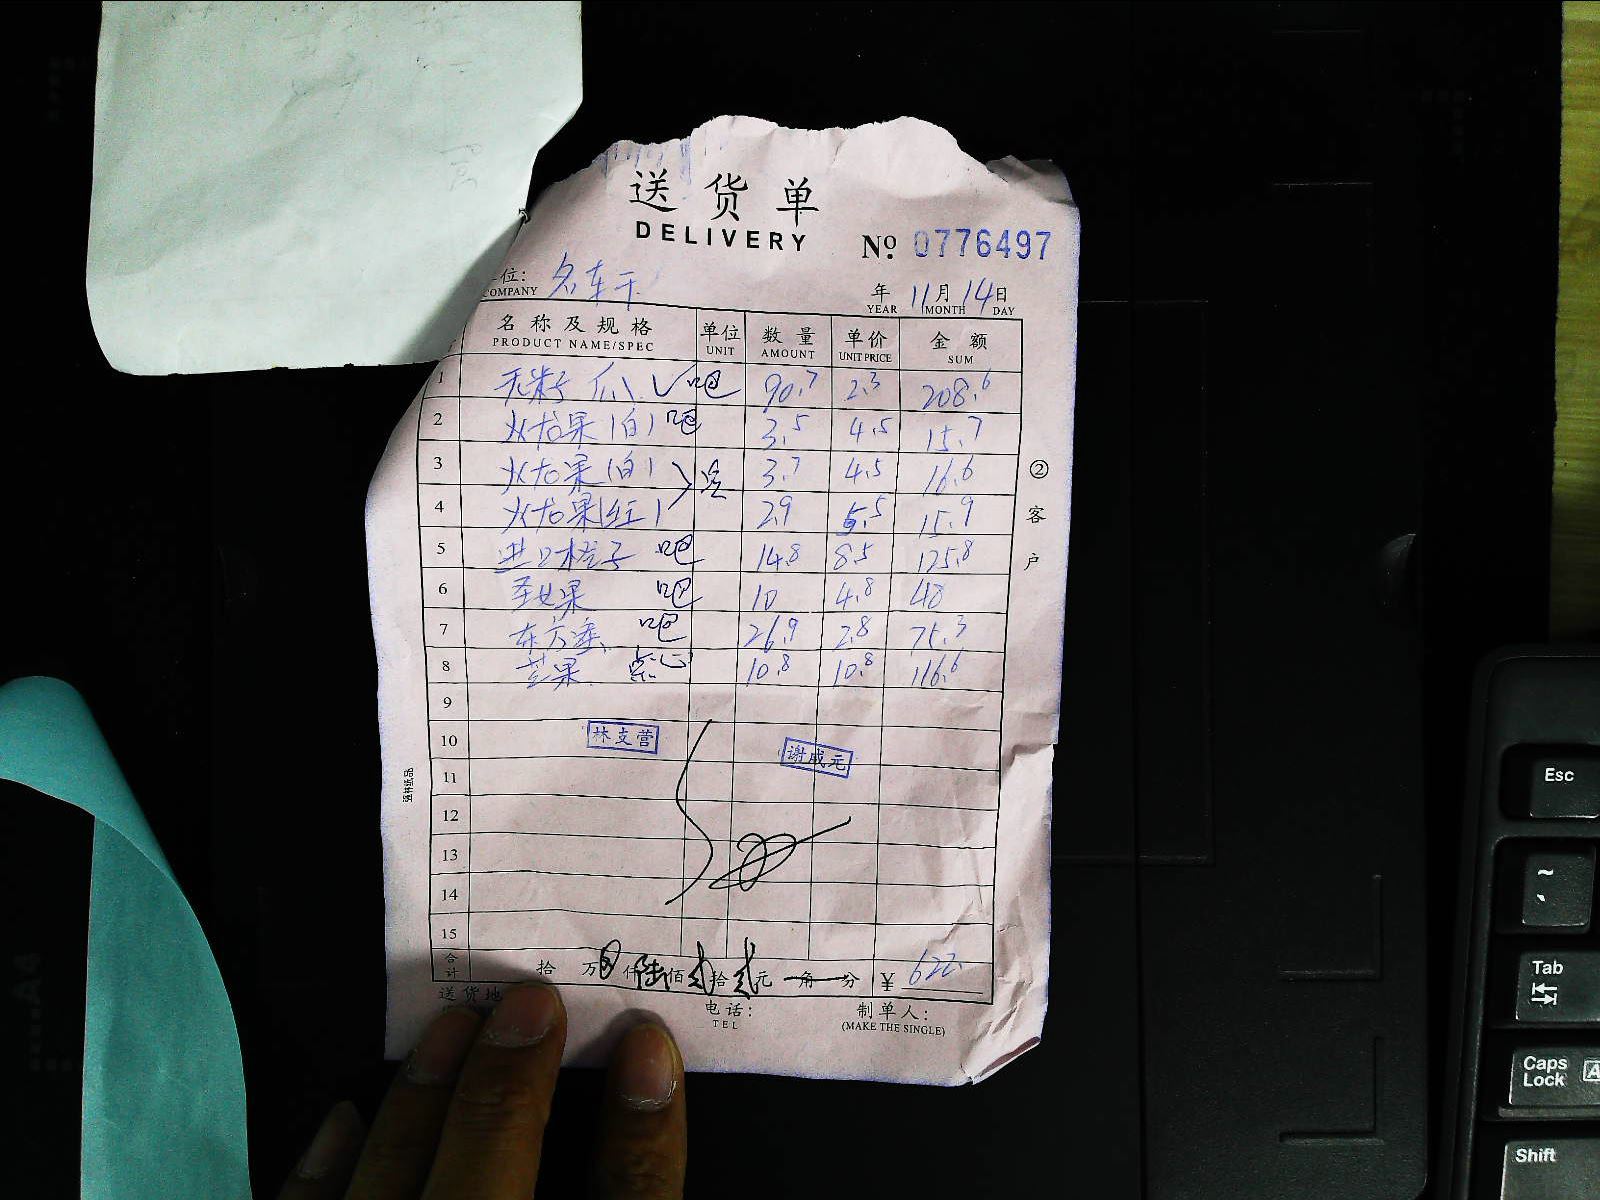 送货单
DELIVERY
№ 0776497
位: 名车
COMPANY
年 11月14日
YEAR MONTH DAY
名称及规格 单位 数量 单价 金额
PRODUCT NAME/SPEC UNIT AMOUNT UNIT PRICE SUM
1 无籽瓜 吧 90.7 2.3 208.6
2 火龙果(白) 吧 3.5 4.5 15.7
3 火龙果(白) 3.7 4.5 16.6
4 火龙果(红) 2.9 5.5 15.9
5 进口橙子 吧 14.8 8.5 125.8
6 圣女果 吧 10 4.8 48
7 东方蜜 吧 26.9 2.8 75.3
8 芒果 点心 10.8 10.8 116.6
9
10 林支营 谢咸元
11
12
13
14
15
合计 拾 万 仟陆佰贰拾贰元 角 分 ¥ 622.
送货地
电话: 制单人:
TEL (MAKE THE SINGLE)
②客户
强林纸品
Esc
~
Tab
Caps Lock A
Shift